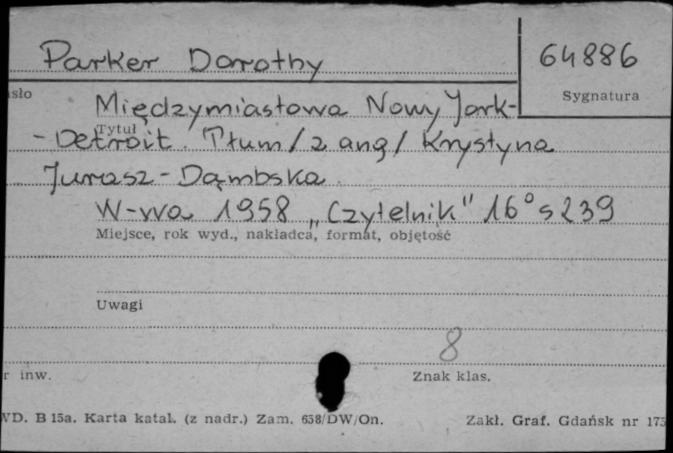 Parker Dorothy
64886
Sygnatura
sło
Międzymiastowa Nowy Jork-
Tytuł
-Detroit. Tłum/z ang/ Krystyna
Jurasz-Dąmbska.
W-wa 1958 „Czytelnik" 16° s 239
Miejsce, rok wyd., nakładca, format, objętość
Uwagi
8
r inw.
Znak klas.
WD. B 15a. Karta katal. (z nadr.) Zam. 658/DW/On.
Zakł. Graf. Gdańsk nr 175